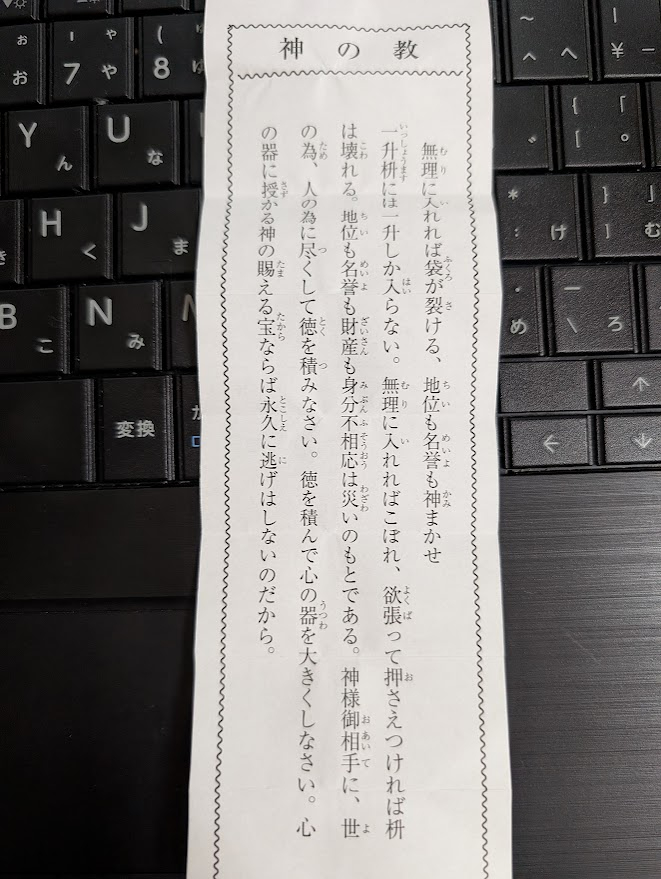 神の教
無理に入れれば袋が裂ける、地位も名誉も神まかせ
一升枡には一升しか入らない。無理に入れればこぼれ、欲張って押さえつければ枡
は壊れる。地位も名誉も財産も身分不相応は災いのもとである。神様御相手に、世
の為、人の為に尽くして徳を積みなさい。徳を積んで心の器を大きくしなさい。心
の器に授かる神の賜える宝ならば永久に逃げはしないのだから。
お
7 や
8
Y ん
U な
H く
J ま
B こ
N み
変換
~
^ へ
¥ ー
{
[ 。
* : け
}
] む
め
ろ